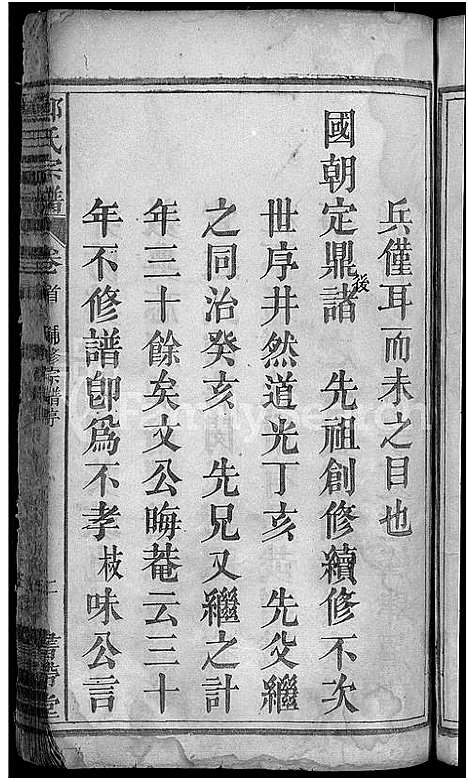 兵僅耳而未之目也
國朝定鼎後諸　先祖創修續修不次
世序井然道光丁亥　先父繼
之同治癸亥　先兄又繼之計
年三十餘矣文公晦菴云三十
年不修譜卽爲不孝枝味公言
氏宗譜
卷首
修宗譜序
堂